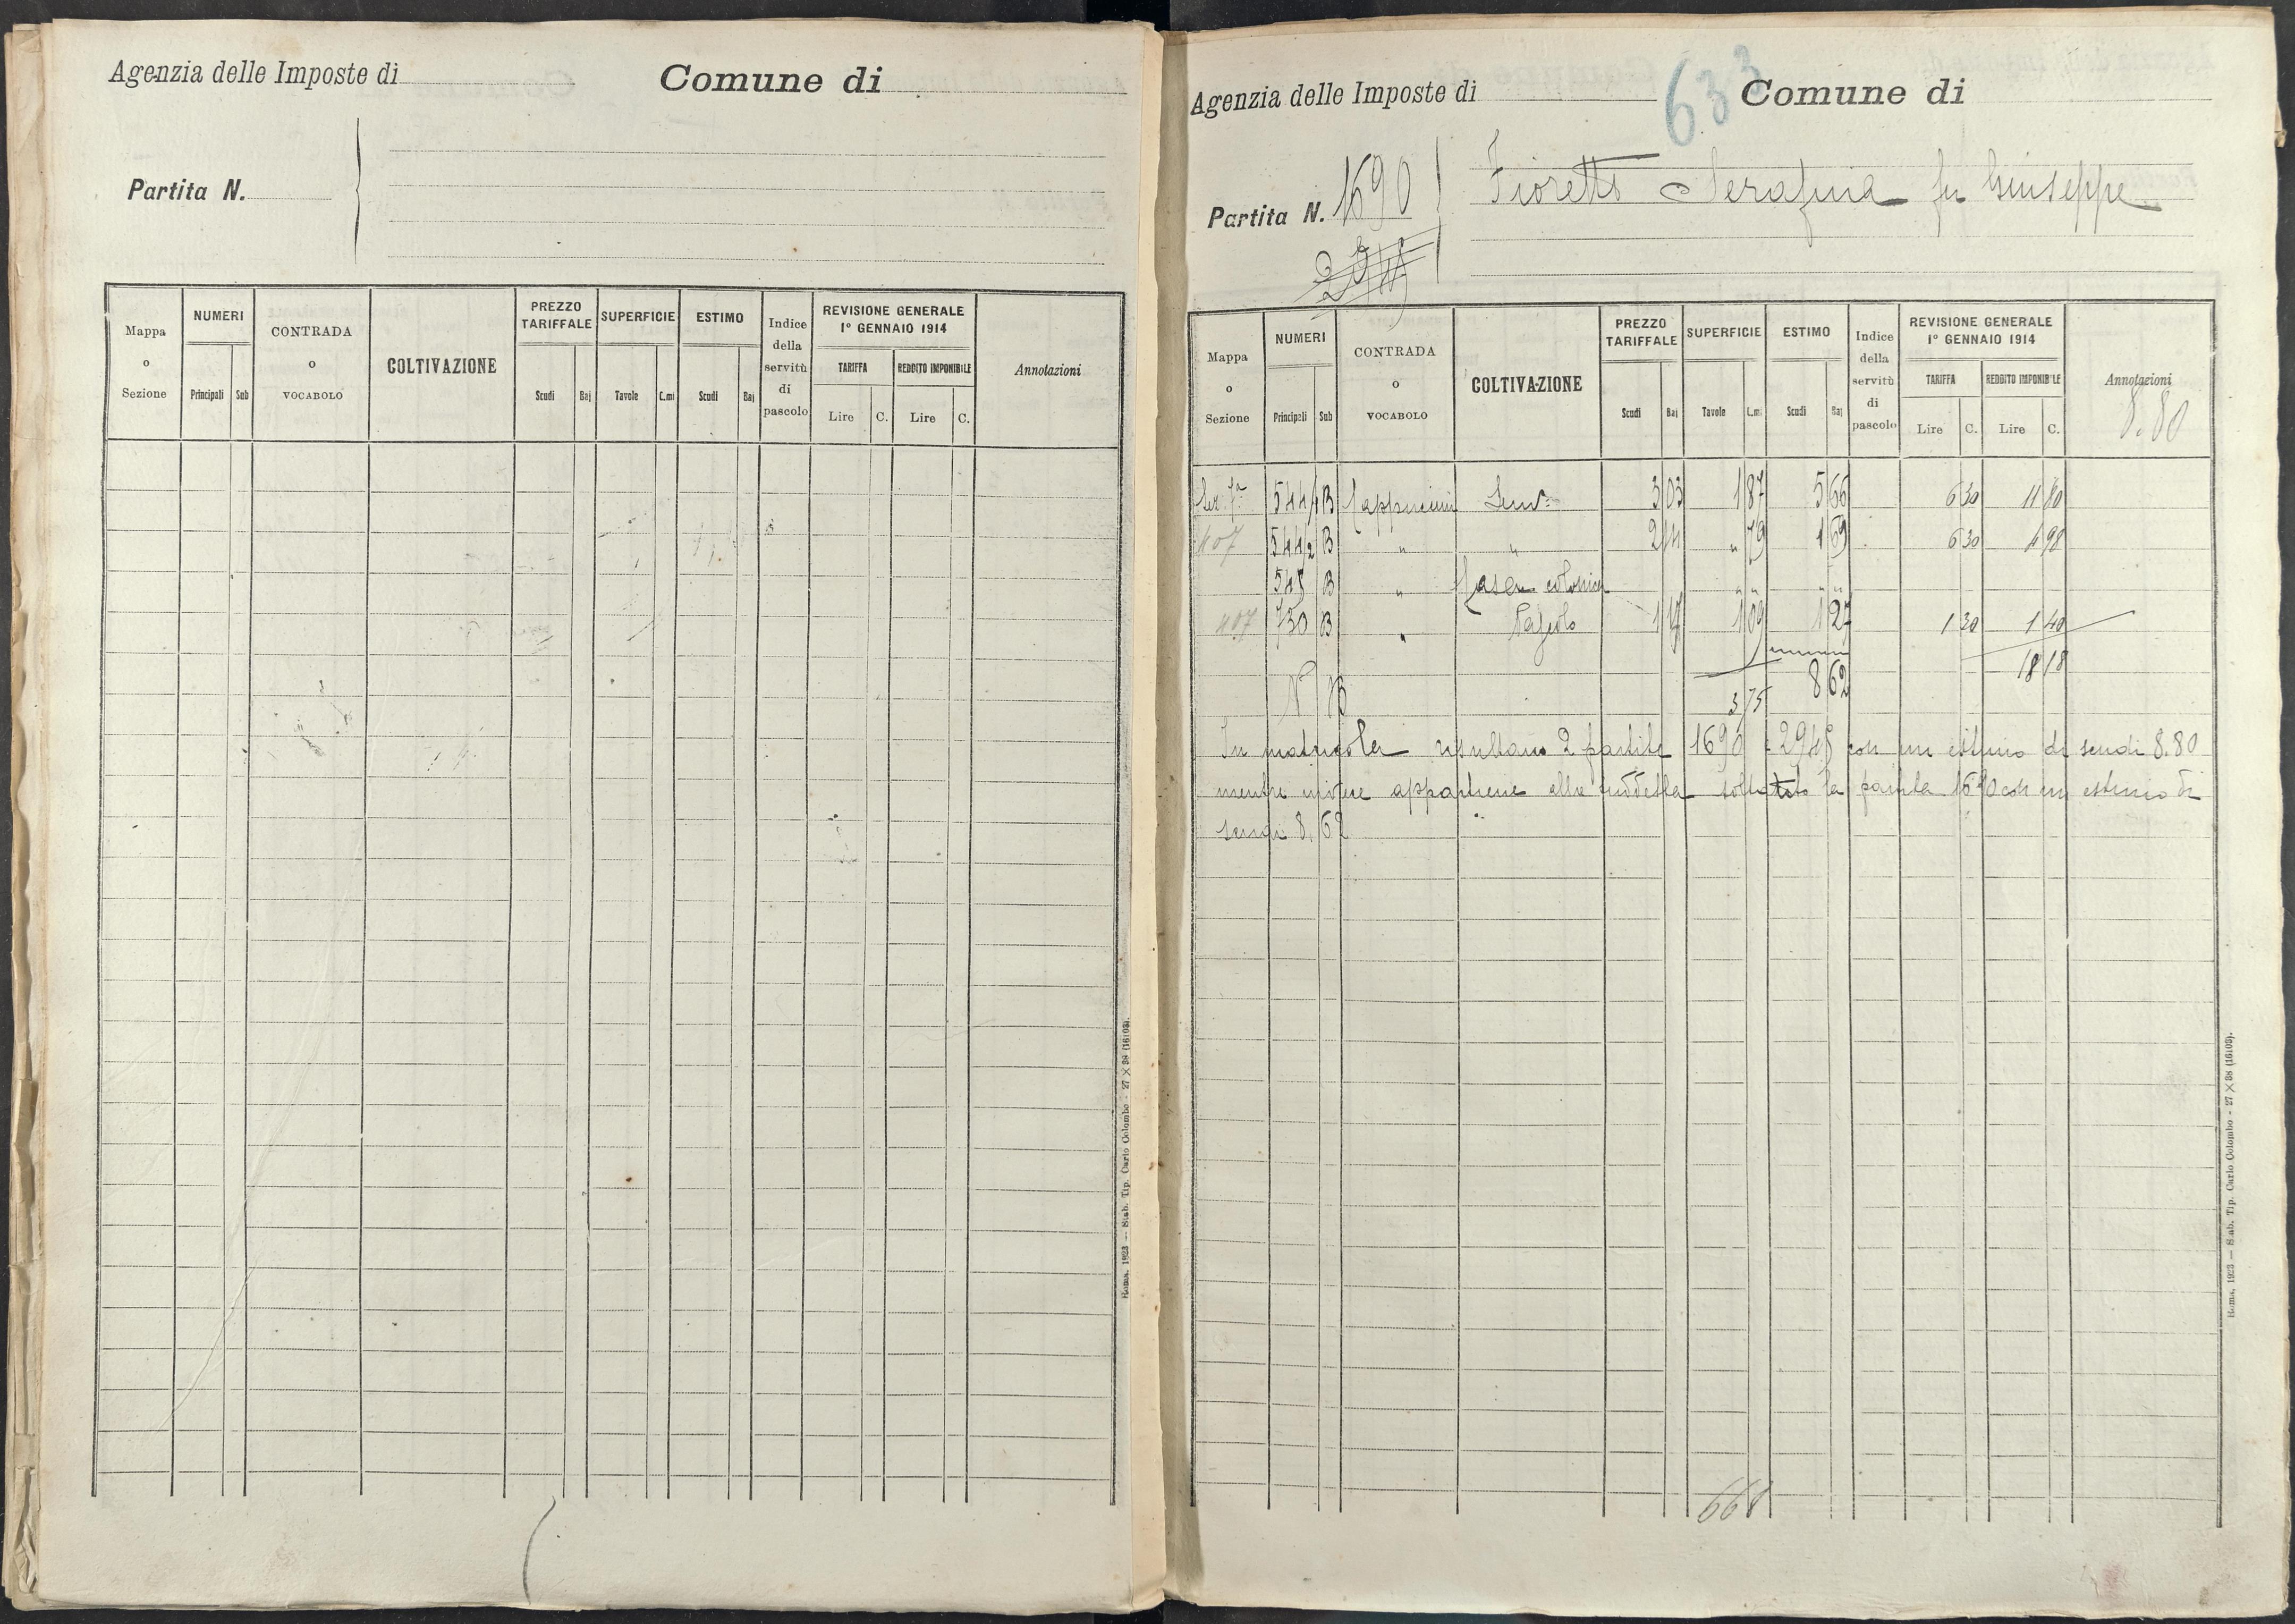 Agenzia delle Imposte di Comune di
Partita N.
Mappa o Sezione
NUMERI
Principali Sub
CONTRADA o VOCABOLO
COLTIVAZIONE
PREZZO TARIFFALE
Scudi Baj
SUPERFICIE
Tavole C.mi
ESTIMO
Scudi Baj
Indice della servitù di pascolo
REVISIONE GENERALE
1° GENNAIO 1914
TARIFFA REDDITO IMPONIBILE
Lire C. Lire C.
Annotazioni
Roma, 1923 — Stab. Tip. Carlo Colombo - 27 × 38 (16103).
633
Agenzia delle Imposte di Comune di
Partita N. 1690 Fioretti Serafina fu Giuseppe
Mappa o Sezione
NUMERI
Principali Sub
CONTRADA o VOCABOLO
COLTIVAZIONE
PREZZO TARIFFALE
Scudi Baj
SUPERFICIE
Tavole C.mi
ESTIMO
Scudi Baj
Indice della servitù di pascolo
REVISIONE GENERALE
1° GENNAIO 1914
TARIFFA REDDITO IMPONIBILE
Lire C. Lire C.
Annotazioni
8.80
Sez. 7a 544/1 B Cappuccini Semo 3 03 1 87 5 66 6 30 11 80
407 544/2 B " " 2 14 " 79 1 69 6 30 4 98
545 B " Casa colonica " " " "
407 730 B " Pascolo 1 17 1 09 1 27 1 30 1 40
3 75 8 62 18 18
N B
In matricola risultano 2 partite 1690 e 2945 con un estimo di scudi 8.80
mentre invece appartiene alla suddetta soltanto la partita 1690 con un estimo di
scudi 8.62
668
Roma, 1923 — Stab. Tip. Carlo Colombo - 27 × 38 (16103).